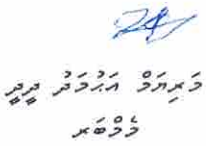 މަރިޔަމް އަޙުމަދު ދީދީ
މެމްބަރ